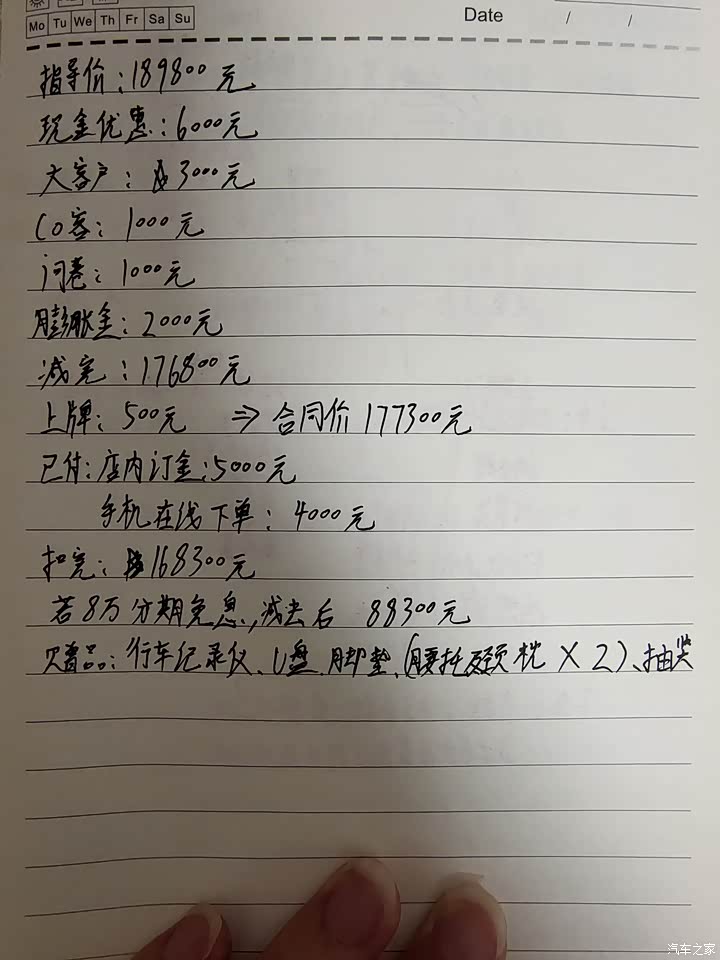 Mo Tu We Th Fr Sa Su
Date / /
指导价:189800元
现金优惠:6000元
大客户:3000元
CO客:1000元
问卷:1000元
膨胀金:2000元
减完:176800元
上牌:500元 ⇒ 合同价177300元
已付:店内订金:5000元
手机在线下单:4000元
扣完:168300元
若8万分期免息,减去后 88300元
欠赠品:行车记录仪、U盘、脚垫、(腰托及颈枕×2)、抽奖
汽车之家